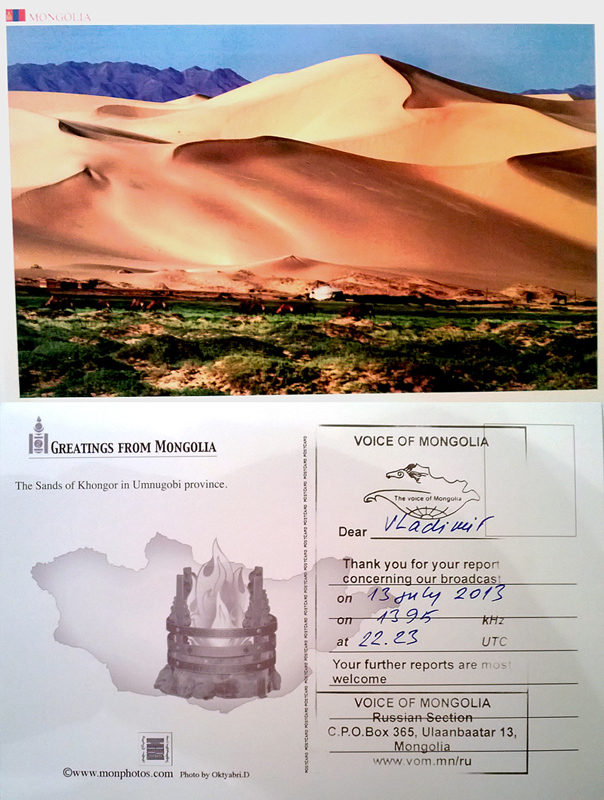 MONGOLIA
GREATINGS FROM MONGOLIA
The Sands of Khongor in Umnugobi province.
©www.monphotos.com Photo by Oktyabri.D
POSTCARD POSTCARD POSTCARD POSTCARD POSTCARD POSTCARD POSTCARD POSTCARD
VOICE OF MONGOLIA
The voice of Mongolia
Dear Vladimir
Thank you for your report
concerning our broadcast
on 13 july 2013
on 1395 kHz
at 22.23 UTC
Your further reports are most
welcome
VOICE OF MONGOLIA
Russian Section
C.P.O.Box 365, Ulaanbaatar 13,
Mongolia
www.vom.mn/ru